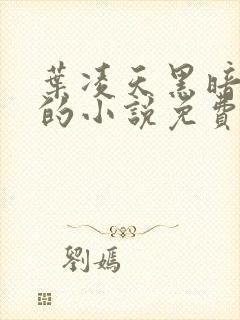 葉凌天黑暗
的小說免費
劉嫣